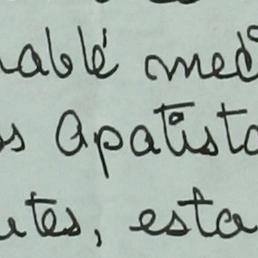 hablé med
s apatista
utes, esta